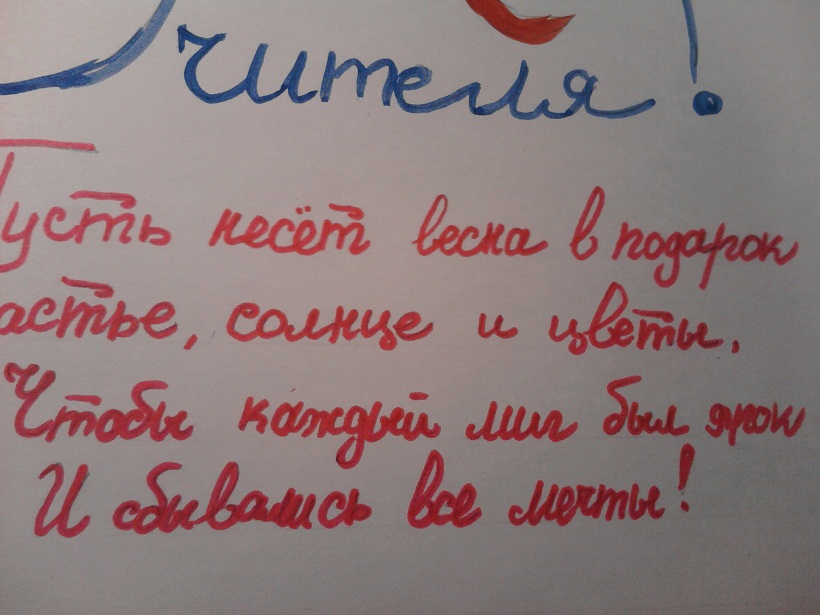 чителя!
Пусть несёт весна в подарок
астье, солнце и цветы,
Чтобы каждый миг был ярок
И сбывались все мечты!